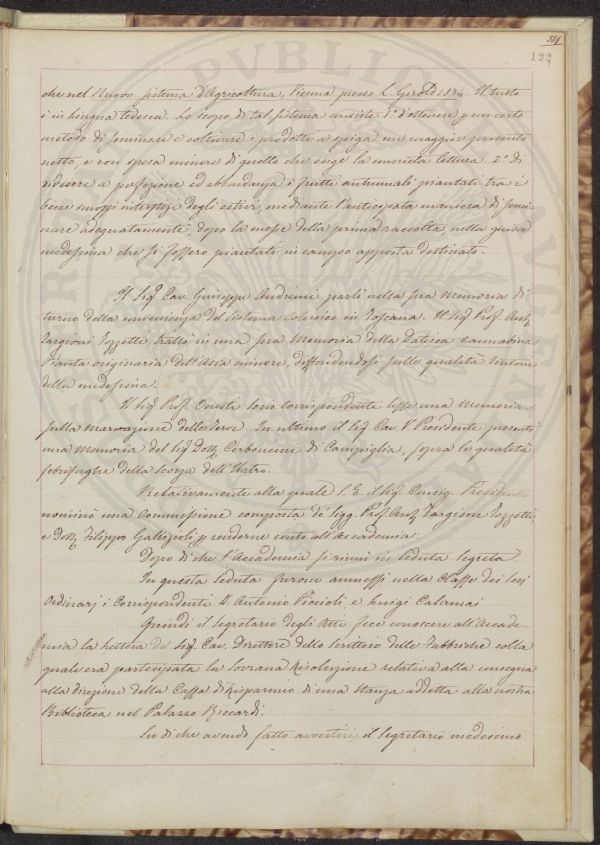 351
192
che nel Nuovo sistema d'Agricoltura, Vienna presso L. Gerold 1824. Il tutto
è in lingua tedesca. Lo scopo di tal sistema consiste 1.° d'ottenere p un certo
metodo di seminare e coltivare i prodotti a spiga un maggior prodotto
netto, e con spesa minore di quello che esige la consueta cultura. 2.° di
ridurre a perfezione ed abbondanza i frutti autunnali piantati tra i
bene smossi interstizi degli estivi, mediante l'anticipata maniera di semi-
nare adeguatamente, dopo la messe della prima raccolta, nella guisa
medesima che se fossero piantati in campo apposta destinato.
Il Sig. Cav. Giuseppe Andreini parlò nella sua Memoria di
turno della convenienza del Sistema Colonico in Toscana. Il Sig. Prof. Ant.
Targioni Tozzetti trattò in una sua Memoria della Datisca cannabina
Pianta originaria dell'Asia minore, diffondendosi sulle qualità tintorie
della medesima.
Il Sig. Prof. Onesti Socio Corrispondente lesse una Memoria
sulla marnazione delle terre. In ultimo il Sig. Cav. V. Presidente presentò
una Memoria del Sig. Dott. Cerboncini di Campiglia, sopra le qualità
febrifughe della Scorza dell'Ilatro.
Relativamente alla quale S. E. il Sig. Consig. Presidente
nominò una Commissione composta de' Sigg. Prof. Ant. Targioni Tozzetti,
e Dott. Filippo Gallizioli p renderne conto all'Accademia.
Dopo di che l'Accademia si riunì in Seduta Segreta.
In questa Seduta furono ammessi nella Classe dei Soci
Ordinarj i Corrispondenti D. Antonio Piccioli, e Luigi Calamai
Quindi il Segretario degli Atti fece conoscere all'Accade-
mia la Lettera del Sig. Cav. Direttore dello Scrittoio delle Fabbriche colla
quale era partecipata la Sovrana Risoluzione relativa alla consegna
alla direzione della Cassa di Risparmio di una Stanza addetta alla nostra
Biblioteca nel Palazzo Riccardi.
Su di che avendo fatto avvertire il Segretario medesimo